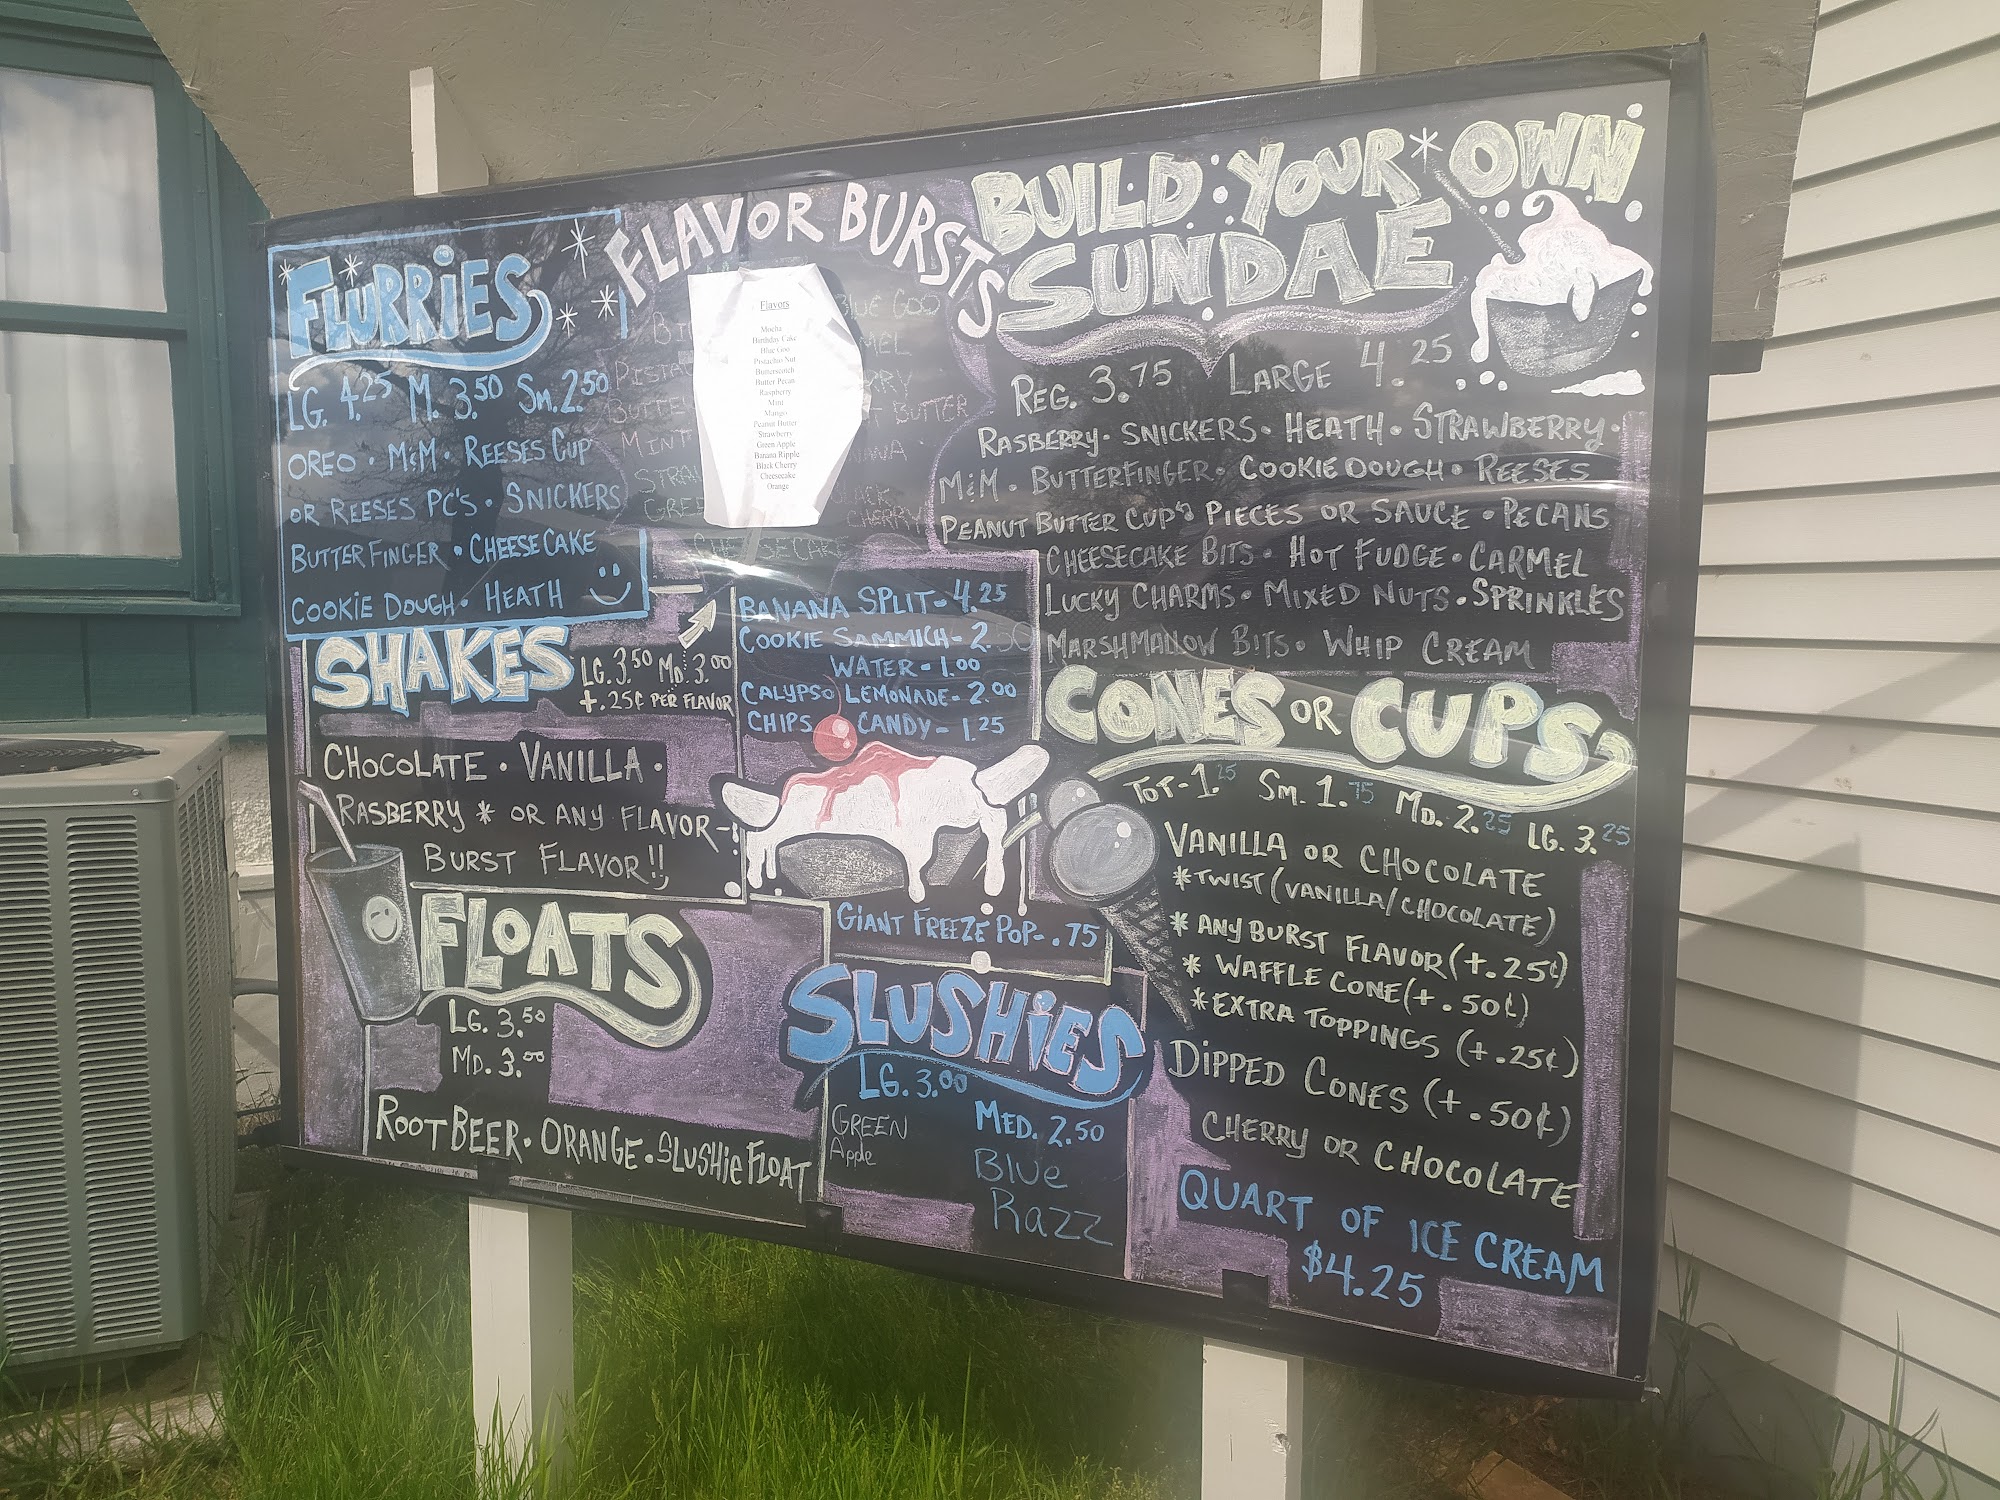 FLURRIES
LG. 4.25 M. 3.50 Sm. 2.50
OREO · M&M · REESES CUP
OR REESES PC'S · SNICKERS
BUTTERFINGER · CHEESECAKE
COOKIE DOUGH · HEATH
FLAVOR BURSTS
Flavors
Mocha
Birthday Cake
Blue Goo
Pistachio Nut
Butterscotch
Butter Pecan
Raspberry
Mint
Mango
Peanut Butter
Strawberry
Green Apple
Banana Ripple
Black Cherry
Cheesecake
Orange
BLUE GOO
BUTTER
MINT
BLACK
CHERRY
CHEESECAKE
BUILD YOUR * OWN
SUNDAE
REG. 3.75 LARGE 4.25
RASBERRY · SNICKERS · HEATH · STRAWBERRY ·
M&M · BUTTERFINGER · COOKIE DOUGH · REESES
PEANUT BUTTER CUP'S PIECES OR SAUCE · PECANS
CHEESECAKE BITS · HOT FUDGE · CARMEL
LUCKY CHARMS · MIXED NUTS · SPRINKLES
MARSHMALLOW BITS · WHIP CREAM
SHAKES
LG. 3.50 MD. 3.00
+.25¢ PER FLAVOR
CHOCOLATE · VANILLA ·
RASBERRY * OR ANY FLAVOR-
BURST FLAVOR!!
BANANA SPLIT - 4.25
COOKIE SAMMICH - 2.50
WATER - 1.00
CALYPSO LEMONADE - 2.00
CHIPS CANDY - 1.25
GIANT FREEZE POP - .75
FLOATS
LG. 3.50
MD. 3.00
ROOT BEER · ORANGE · SLUSHiE FLOAT
SLUSHiES
LG. 3.00
MED. 2.50
GREEN
Apple
Blue
Razz
CONES OR CUPS
TOT - 1.25 Sm. 1.75 MD. 2.25 LG. 3.25
VANILLA OR CHOCOLATE
* TWIST (VANILLA/CHOCOLATE)
* ANY BURST FLAVOR (+.25¢)
* WAFFLE CONE (+.50¢)
* EXTRA TOPPINGS (+.25¢)
DIPPED CONES (+.50¢)
CHERRY OR CHOCOLATE
QUART OF ICE CREAM
$4.25